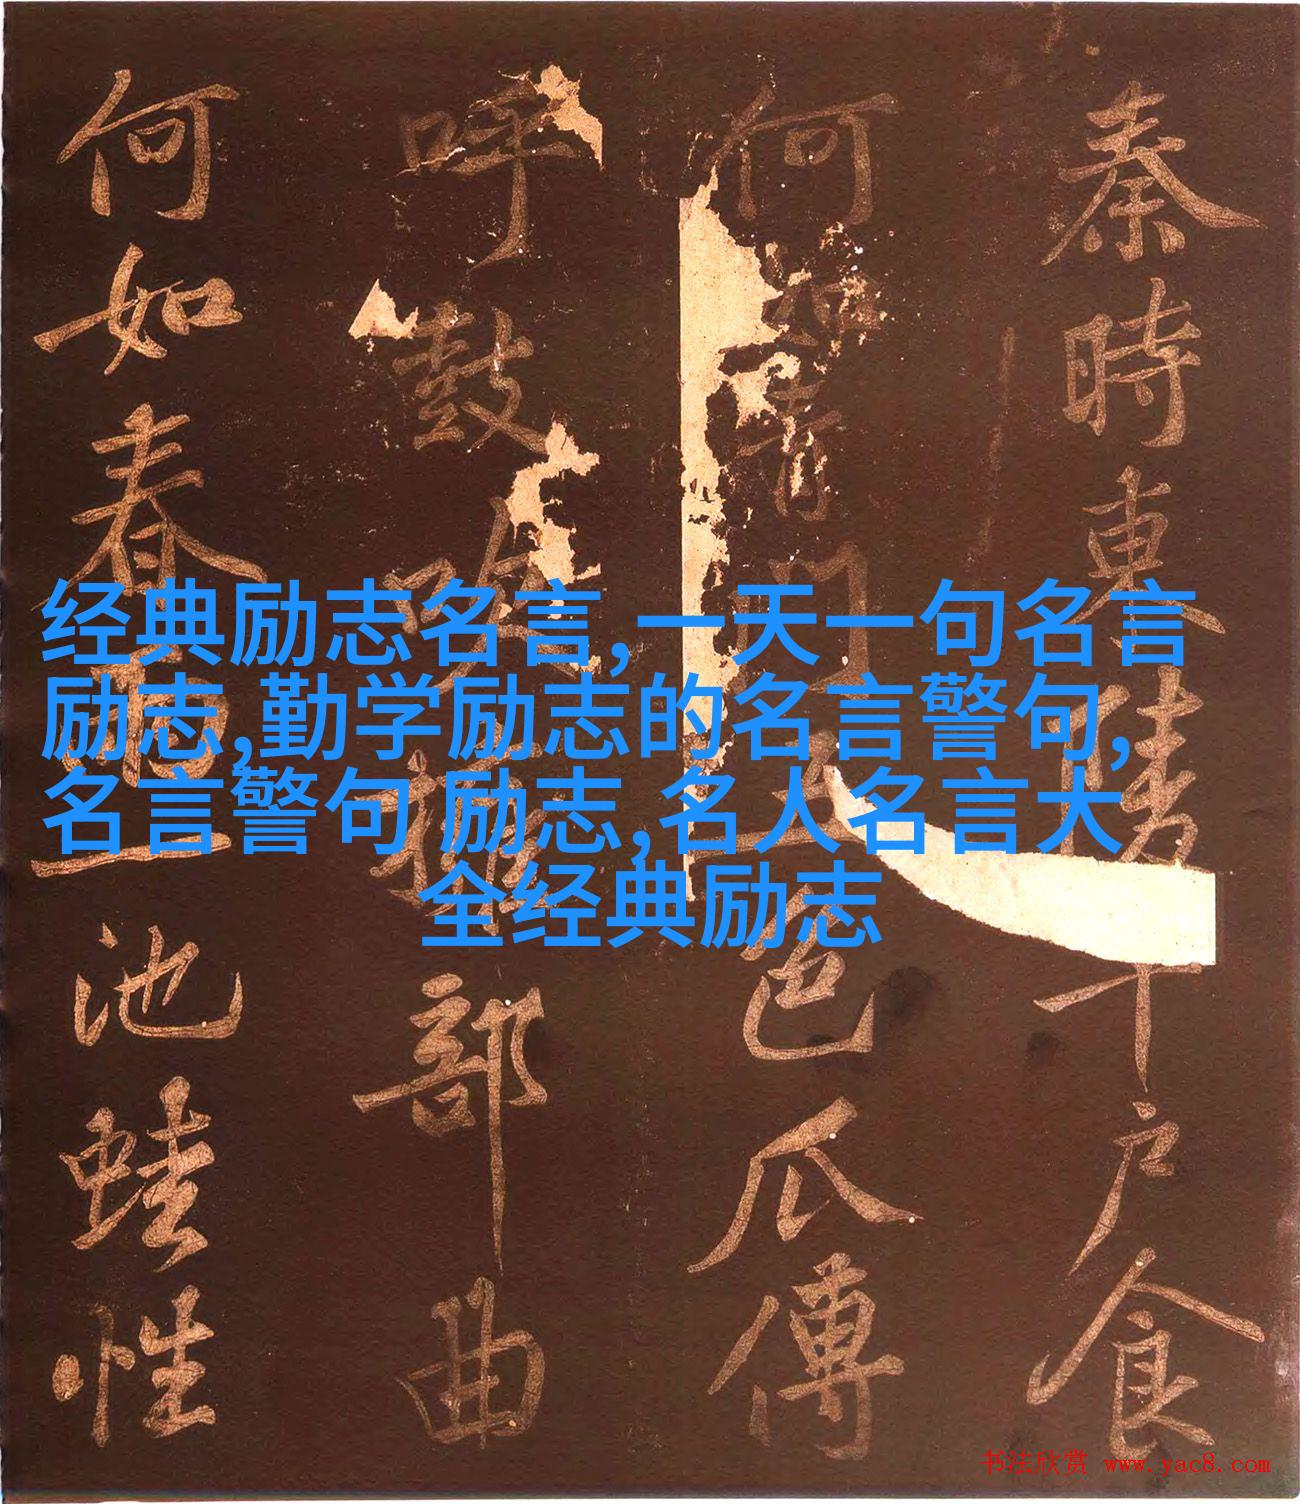 秦時東陵千戶食
何如青門五色瓜傳
呼鼓吹擁部曲
何如春雨一池蛙性
经典励志名言,一天一句名言
励志,勤学励志的名言警句,
名言警句 励志,名人名言大
全经典励志
书法欣赏 www.yac8.com